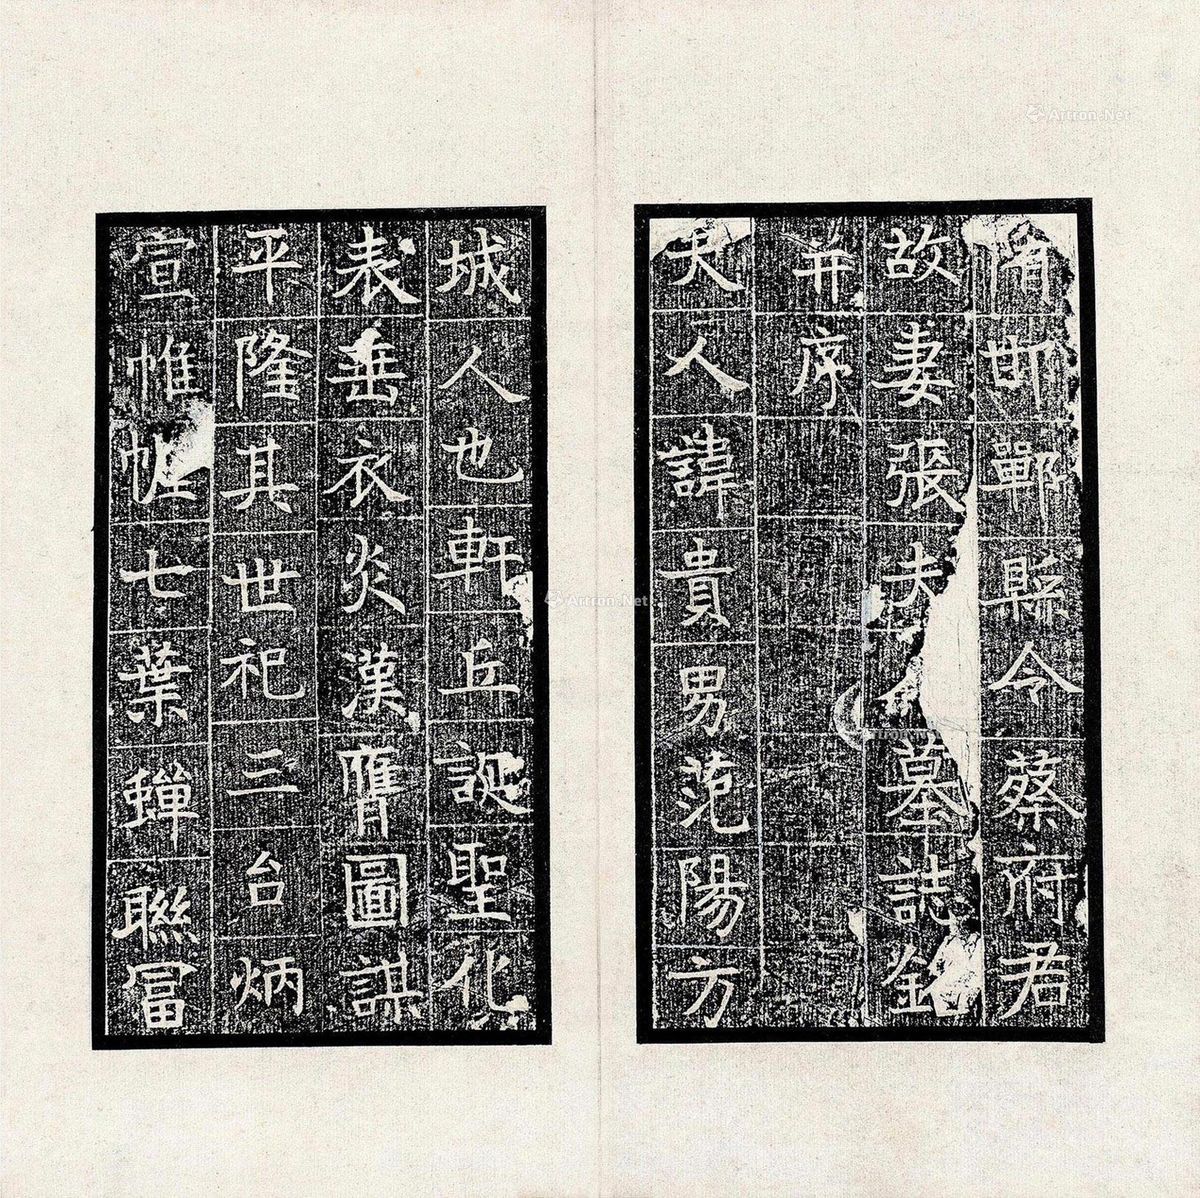 隋邯鄲縣令蔡府君
故妻張夫人墓誌銘
并序
夫人諱貴男范陽方
城人也軒丘誕聖化
表垂衣炎漢膺圖謀
平隆其世祀三台炳
宣帷幄七葉蟬聯冨
Artron.Net
Artron.Net